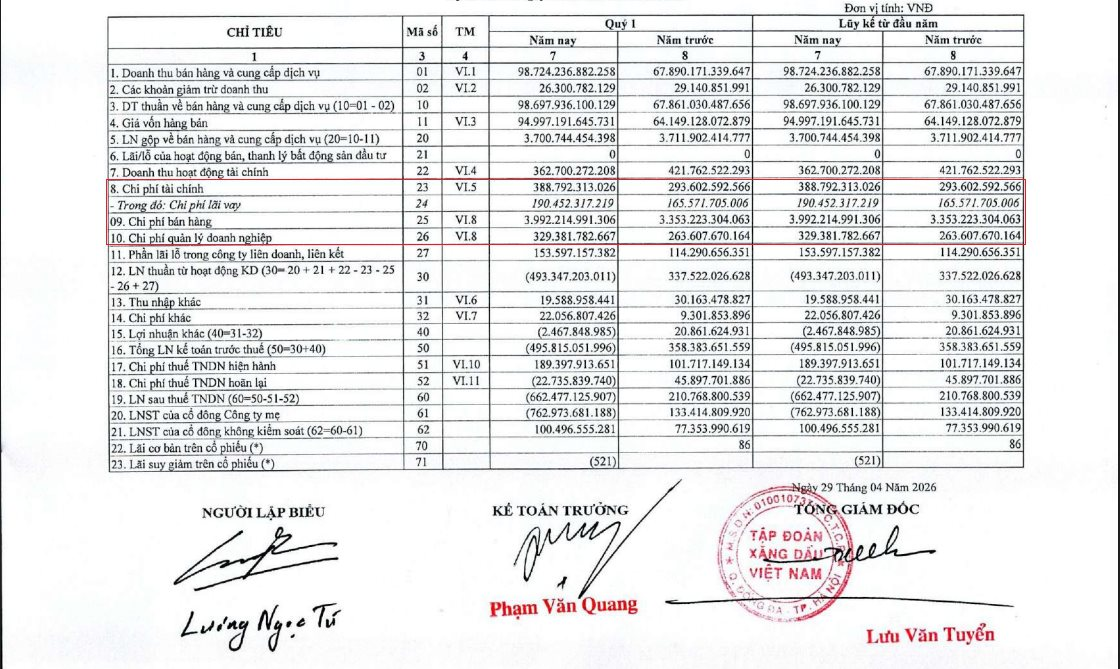 Đơn vị tính: VNĐ
CHỈ TIÊU Mã số TM Quý 1 Lũy kế từ đầu năm
Năm nay Năm trước Năm nay Năm trước
1 3 4 7 8 7 8
1. Doanh thu bán hàng và cung cấp dịch vụ 01 VI.1 98.724.236.882.258 67.890.171.339.647 98.724.236.882.258 67.890.171.339.647
2. Các khoản giảm trừ doanh thu 02 VI.2 26.300.782.129 29.140.851.991 26.300.782.129 29.140.851.991
3. DT thuần về bán hàng và cung cấp dịch vụ (10=01 - 02) 10 98.697.936.100.129 67.861.030.487.656 98.697.936.100.129 67.861.030.487.656
4. Giá vốn hàng bán 11 VI.3 94.997.191.645.731 64.149.128.072.879 94.997.191.645.731 64.149.128.072.879
5. LN gộp về bán hàng và cung cấp dịch vụ (20=10-11) 20 3.700.744.454.398 3.711.902.414.777 3.700.744.454.398 3.711.902.414.777
6. Lãi/lỗ của hoạt động bán, thanh lý bất động sản đầu tư 21 0 0 0 0
7. Doanh thu hoạt động tài chính 22 VI.4 362.700.272.208 421.764.522.293 362.700.272.208 421.764.522.293
8. Chi phí tài chính 23 VI.5 388.792.313.026 293.602.592.566 388.792.313.026 293.602.592.566
- Trong đó: Chi phí lãi vay 24 190.452.317.219 165.571.705.006 190.452.317.219 165.571.705.006
09. Chi phí bán hàng 25 VI.8 3.992.214.991.306 3.353.223.304.063 3.992.214.991.306 3.353.223.304.063
10. Chi phí quản lý doanh nghiệp 26 VI.8 329.381.782.667 263.607.670.164 329.381.782.667 263.607.670.164
11. Phần lãi lỗ trong công ty liên doanh, liên kết 27 153.597.157.382 114.290.656.351 153.597.157.382 114.290.656.351
12. LN thuần từ hoạt động KD (30= 20 + 21 + 22 - 23 - 25
- 26 + 27) 30 (493.347.203.011) 337.522.026.628 (493.347.203.011) 337.522.026.628
13. Thu nhập khác 31 VI.6 19.588.958.441 30.163.478.827 19.588.958.441 30.163.478.827
14. Chi phí khác 32 VI.7 22.056.807.426 9.301.853.896 22.056.807.426 9.301.853.896
15. Lợi nhuận khác (40=31-32) 40 (2.467.848.985) 20.861.624.931 (2.467.848.985) 20.861.624.931
16. Tổng LN kế toán trước thuế (50=30+40) 50 (495.815.051.996) 358.383.651.559 (495.815.051.996) 358.383.651.559
17. Chi phí thuế TNDN hiện hành 51 VI.10 189.397.913.651 101.717.149.134 189.397.913.651 101.717.149.134
18. Chi phí thuế TNDN hoãn lại 52 VI.11 (22.735.839.740) 45.897.701.886 (22.735.839.740) 45.897.701.886
19. LN sau thuế TNDN (60=50-51-52) 60 (662.477.125.907) 210.768.800.539 (662.477.125.907) 210.768.800.539
20. LNST của cổ đông Công ty mẹ 61 (762.973.681.188) 133.414.809.920 (762.973.681.188) 133.414.809.920
21. LNST của cổ đông không kiểm soát (62=60-61) 62 100.496.555.281 77.353.990.619 100.496.555.281 77.353.990.619
22. Lãi cơ bản trên cổ phiếu (*) 70 86 86
23. Lãi suy giảm trên cổ phiếu (*) 71 (521) (521)
Ngày 29 Tháng 04 Năm 2026
NGƯỜI LẬP BIỂU KẾ TOÁN TRƯỞNG TỔNG GIÁM ĐỐC
TẬP ĐOÀN
XĂNG DẦU
VIỆT NAM
Q. ĐỐNG ĐA - TP. HÀ NỘI
Lương Ngọc Tú
Phạm Văn Quang
Lưu Văn Tuyển